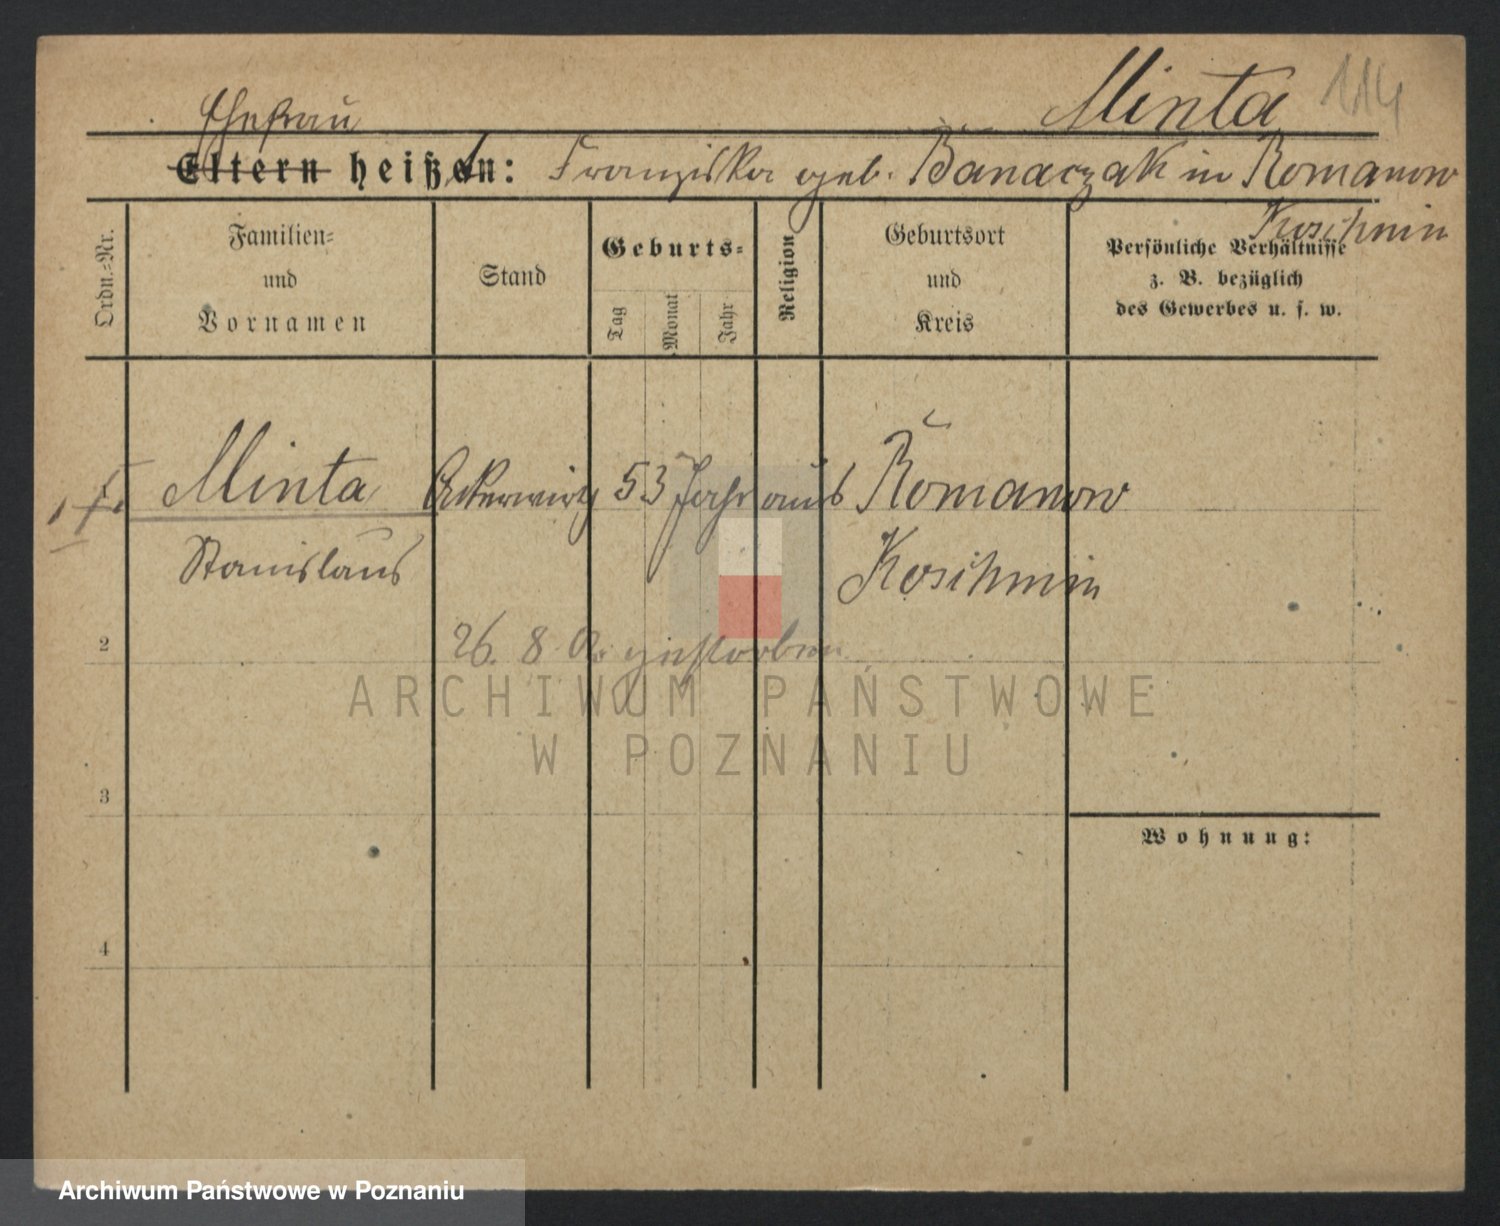 Minta 114
Ehefrau
Eltern heißen: Franziska geb. Banaczak in Romanow
Koschmin
Ordn.=Nr.
Familien=
und
Vornamen
Stand
Geburts=
Tag
Monat
Jahr
Religion
Geburtsort
und
Kreis
Persönliche Verhältnisse
z. B. bezüglich
des Gewerbes u. s. w.
1 Minta Ackerwirth 53 Jahr aus Romanow
Stanislaus Koschmin
2
26. 8. gestorben
ARCHIWUM PAŃSTWOWE
W POZNANIU
3
Wohnung:
4
Archiwum Państwowe w Poznaniu